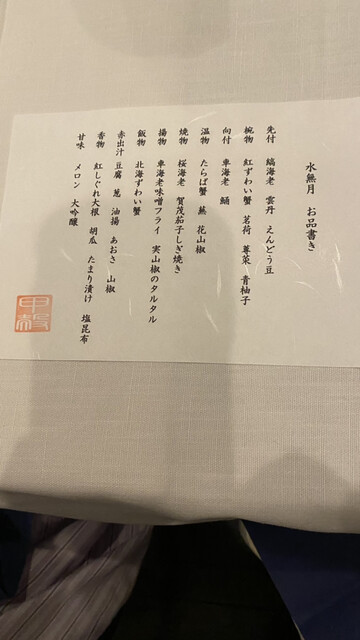 水無月　お品書き
先付　縞海老　雲丹　えんどう豆
椀物　紅ずわい蟹　茗荷　蓴菜　青柚子
向付　車海老　鯒
温物　たらば蟹　蕪　花山椒
焼物　桜海老　賀茂茄子しぎ焼き
揚物　車海老味噌フライ　実山椒のタルタル
飯物　北海ずわい蟹
赤出汁　豆腐　葱　油揚　あおさ　山椒
香物　紅しぐれ大根　胡瓜　たまり漬け　塩昆布
甘味　メロン　大吟醸
甲殻